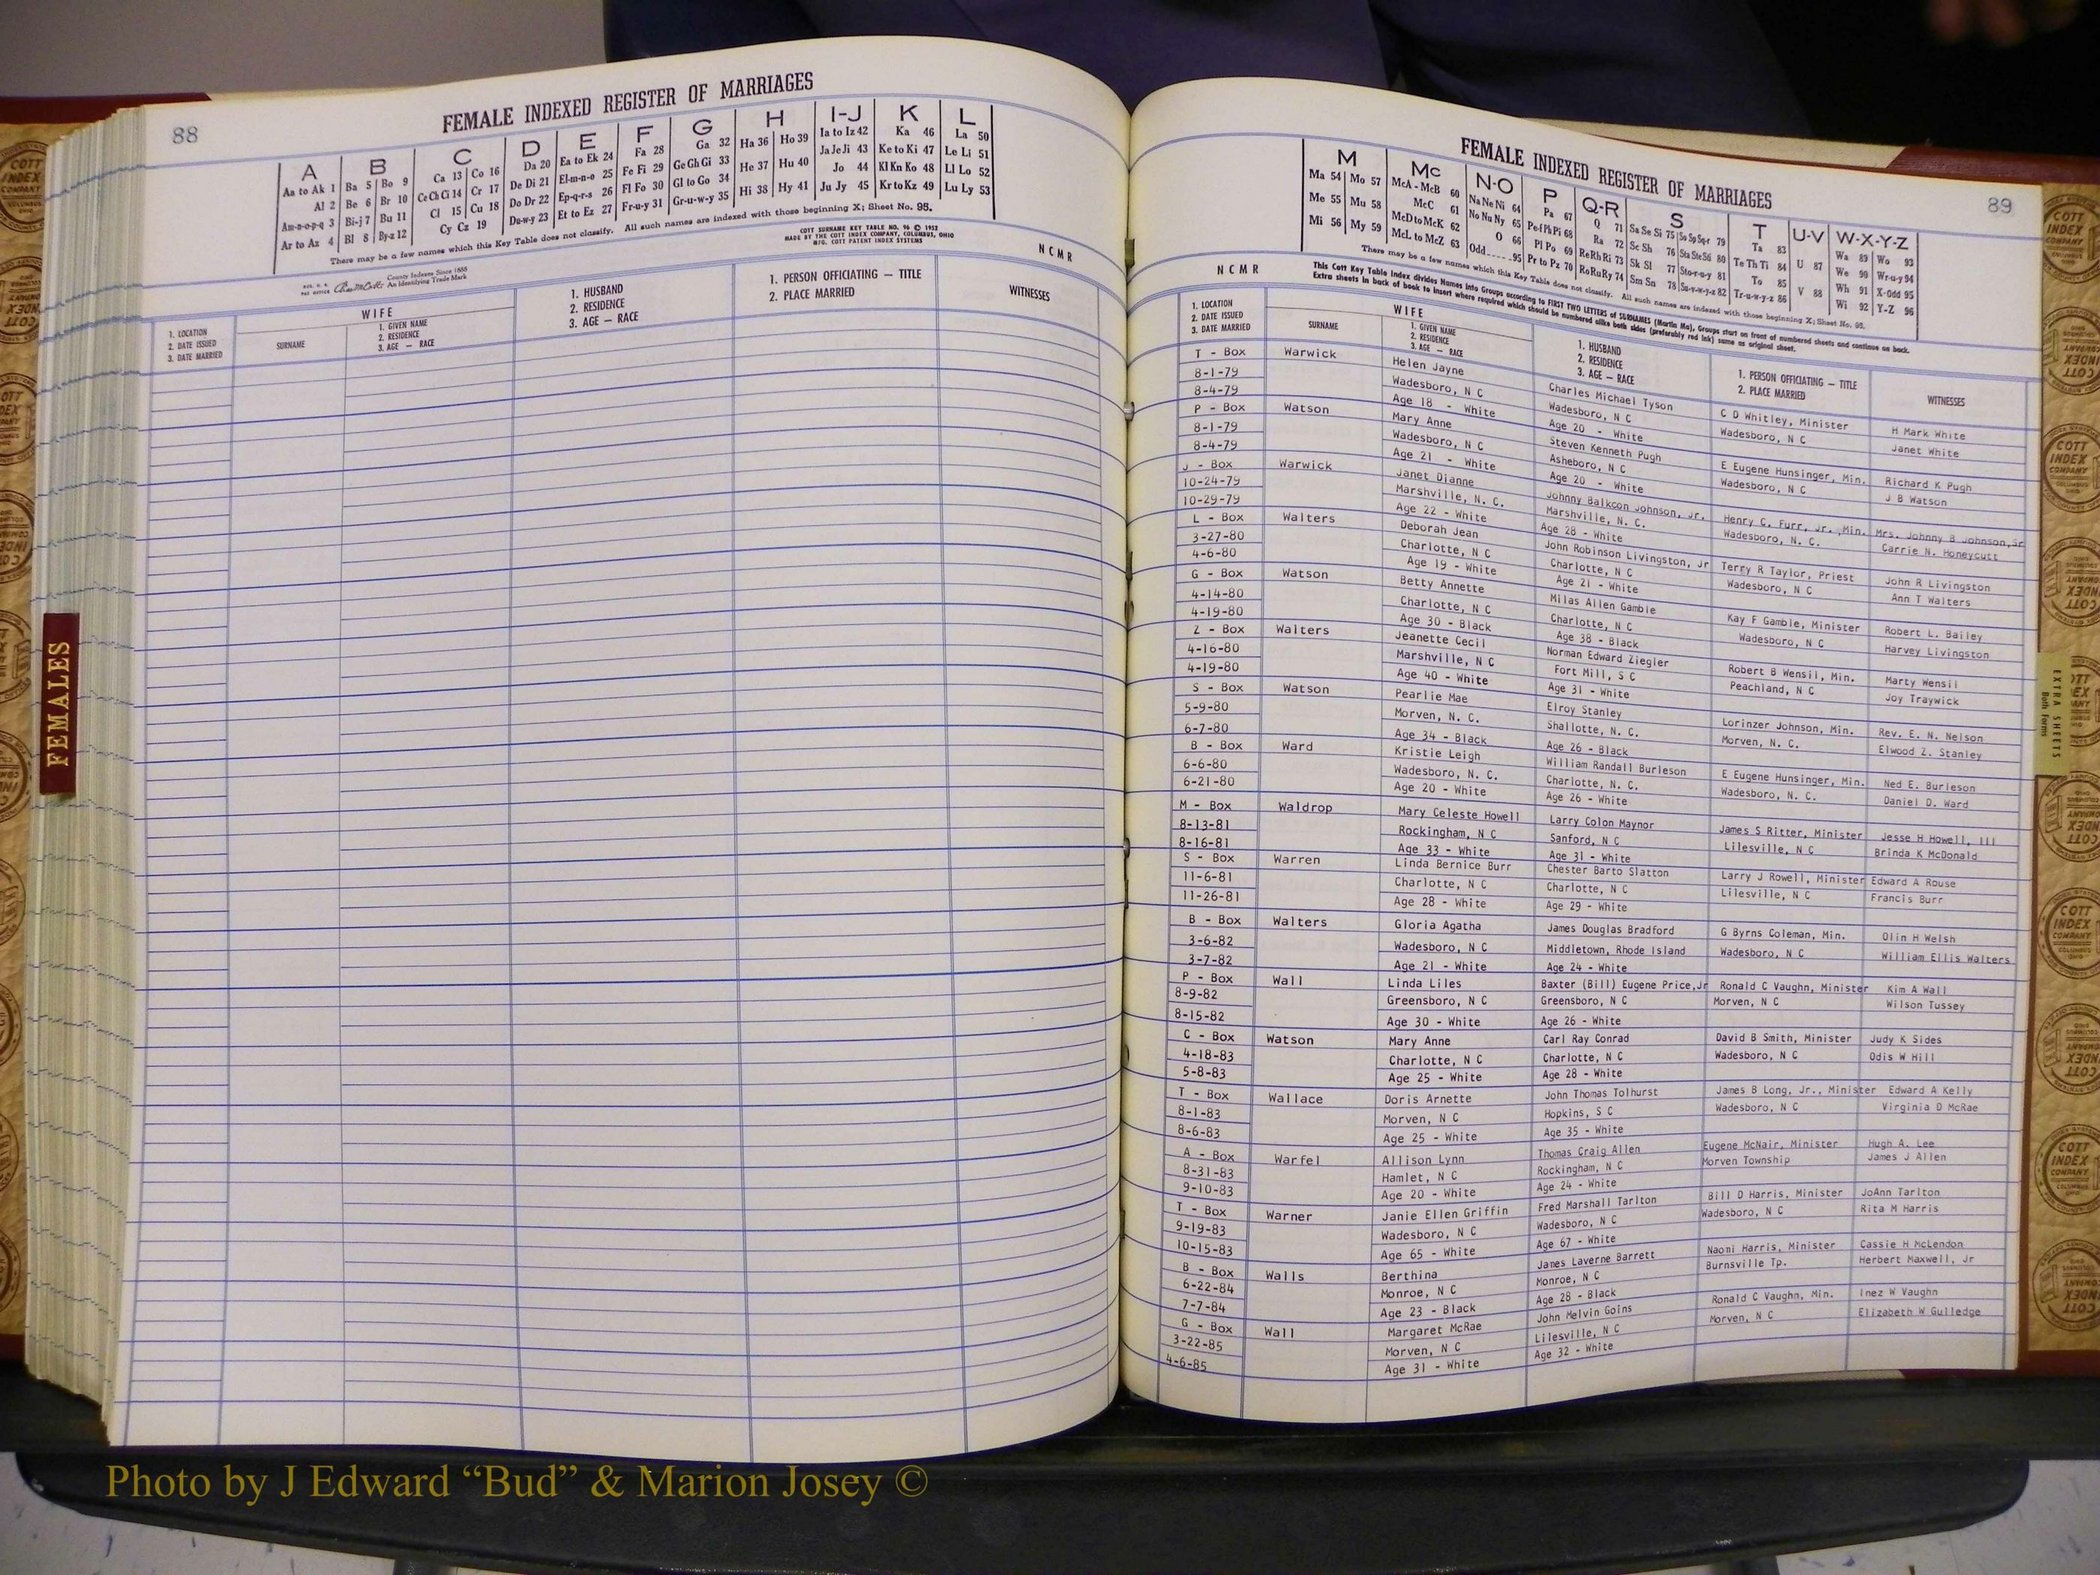 88
FEMALE INDEXED REGISTER OF MARRIAGES
A B C D E F G H I-J K L
Aa to Ak 1 Ba 5 Bo 9 Ca 13 Co 16 Da 20 Ea to Ek 24 Fa 28 Ga 32 Ha 36 Ho 39 Ia to Iz 42 Ka 46 La 50
Al 2 Be 6 Br 10 Ce Ch Ci 14 Cr 17 De Di 21 El-m-n-o 25 Fe Fi 29 Ge Gh Gi 33 He 37 Hu 40 Ja Je Ji 43 Ke to Ki 47 Le Li 51
Am-n-o-p-q 3 Bi-j 7 Bu 11 Cl 15 Cu 18 Do Dr 22 Ep-q-r-s 26 Fl Fo 30 Gl to Go 34 Hi 38 Hy 41 Jo 44 Kl Kn Ko 48 Ll Lo 52
Ar to Az 4 Bl 8 By-z 12 Cy Cz 19 Du-w-y 23 Et to Ez 27 Fr-u-y 31 Gr-u-w-y 35 Ju Jy 45 Kr to Kz 49 Lu Ly 53
There may be a few names which this Key Table does not classify. All such names are indexed with those beginning X; Sheet No. 95.
COTT SURNAME KEY TABLE NO. 96 © 1952
MADE BY THE COTT INDEX COMPANY, COLUMBUS, OHIO
MFG. COTT PATENT INDEX SYSTEMS
NCMR
County Indexes Since 1888
An Identifying Trade Mark
1. LOCATION
2. DATE ISSUED
3. DATE MARRIED
WIFE
SURNAME
1. GIVEN NAME
2. RESIDENCE
3. AGE — RACE
1. HUSBAND
2. RESIDENCE
3. AGE — RACE
1. PERSON OFFICIATING — TITLE
2. PLACE MARRIED
WITNESSES
FEMALES
89
FEMALE INDEXED REGISTER OF MARRIAGES
M Mc N-O P Q-R S T U-V W-X-Y-Z
Ma 54 Mo 57 McA - McB 60 Na Ne Ni 64 Pa 67 Q 71 Sa Se Si 75 So Sp Sq-r 79 Ta 83 U 87 Wa 89 Wo 93
Me 55 Mu 58 McC 61 No Nu Ny 65 Pe-f Ph Pi 68 Ra 72 Sc Sh 76 Sta Ste Sti 80 Te Th Ti 84 V 88 We 90 Wr-u-y 94
Mi 56 My 59 McD to McK 62 O 66 Pl Po 69 Re Rh Ri 73 Sk Sl 77 Sto-r-u-y 81 To 85 Wh 91 X-Odd 95
McL to McZ 63 Odd 95 Pr to Pz 70 Ro Ru Ry 74 Sm Sn 78 Su-v-w-y-z 82 Tr-u-w-y-z 86 Wi 92 Y-Z 96
There may be a few names which this Key Table does not classify. All such names are indexed with those beginning X; Sheet No. 95.
NCMR
This Cott Key Table Index divides Names into Groups according to FIRST TWO LETTERS of SURNAMES (Martin Ma), Groups start on front of numbered sheets and continue on back.
Extra sheets in back of book to insert where required which should be numbered alike both sides (preferably red ink) same as original sheet.
1. LOCATION
2. DATE ISSUED
3. DATE MARRIED
WIFE
SURNAME
1. GIVEN NAME
2. RESIDENCE
3. AGE — RACE
1. HUSBAND
2. RESIDENCE
3. AGE — RACE
1. PERSON OFFICIATING — TITLE
2. PLACE MARRIED
WITNESSES
T - Box Warwick Helen Jayne Charles Michael Tyson C D Whitley, Minister H Mark White
8-1-79 Wadesboro, N C Wadesboro, N C Wadesboro, N C Janet White
8-4-79 Age 18 - White Age 20 - White
P - Box Watson Mary Anne Steven Kenneth Pugh E Eugene Hunsinger, Min. Richard K Pugh
8-1-79 Wadesboro, N C Asheboro, N C Wadesboro, N C J B Watson
8-4-79 Age 21 - White Age 20 - White
J - Box Warwick Janet Dianne Johnny Balkcon Johnson, Jr. Henry C. Furr, Jr., Min. Mrs. Johnny B Johnson,Sr
10-24-79 Marshville, N. C. Marshville, N. C. Wadesboro, N. C. Carrie N. Honeycutt
10-29-79 Age 22 - White Age 28 - White
L - Box Walters Deborah Jean John Robinson Livingston, Jr Terry R Taylor, Priest John R Livingston
3-27-80 Charlotte, N C Charlotte, N C Wadesboro, N C Ann T Walters
4-6-80 Age 19 - White Age 21 - White
G - Box Watson Betty Annette Milas Allen Gamble Kay F Gamble, Minister Robert L. Bailey
4-14-80 Charlotte, N C Charlotte, N C Wadesboro, N C Harvey Livingston
4-19-80 Age 30 - Black Age 38 - Black
Z - Box Walters Jeanette Cecil Norman Edward Ziegler Robert B Wensil, Min. Marty Wensil
4-16-80 Marshville, N C Fort Mill, S C Peachland, N C Joy Traywick
4-19-80 Age 40 - White Age 31 - White
S - Box Watson Pearlie Mae Elroy Stanley Lorinzer Johnson, Min. Rev. E. N. Nelson
5-9-80 Morven, N. C. Shallotte, N. C. Morven, N. C. Elwood Z. Stanley
6-7-80 Age 34 - Black Age 26 - Black
B - Box Ward Kristie Leigh William Randall Burleson E Eugene Hunsinger, Min. Ned E. Burleson
6-6-80 Wadesboro, N. C. Charlotte, N. C. Wadesboro, N. C. Daniel D. Ward
6-21-80 Age 20 - White Age 26 - White
M - Box Waldrop Mary Celeste Howell Larry Colon Maynor James S Ritter, Minister Jesse H Howell, III
8-13-81 Rockingham, N C Sanford, N C Lilesville, N C Brinda K McDonald
8-16-81 Age 33 - White Age 31 - White
S - Box Warren Linda Bernice Burr Chester Barto Slatton Larry J Rowell, Minister Edward A Rouse
11-6-81 Charlotte, N C Charlotte, N C Lilesville, N C Francis Burr
11-26-81 Age 28 - White Age 29 - White
B - Box Walters Gloria Agatha James Douglas Bradford G Byrns Coleman, Min. Olin H Welsh
3-6-82 Wadesboro, N C Middletown, Rhode Island Wadesboro, N C William Ellis Walters
3-7-82 Age 21 - White Age 24 - White
P - Box Wall Linda Liles Baxter (Bill) Eugene Price,Jr Ronald C Vaughn, Minister Kim A Wall
8-9-82 Greensboro, N C Greensboro, N C Morven, N C Wilson Tussey
8-15-82 Age 30 - White Age 26 - White
C - Box Watson Mary Anne Carl Ray Conrad David B Smith, Minister Judy K Sides
4-18-83 Charlotte, N C Charlotte, N C Wadesboro, N C Odis W Hill
5-8-83 Age 25 - White Age 28 - White
T - Box Wallace Doris Arnette John Thomas Tolhurst James B Long, Jr., Minister Edward A Kelly
8-1-83 Morven, N C Hopkins, S C Wadesboro, N C Virginia D McRae
8-6-83 Age 25 - White Age 35 - White
A - Box Warfel Allison Lynn Thomas Craig Allen Eugene McNair, Minister Hugh A. Lee
8-31-83 Hamlet, N C Rockingham, N C Morven Township James J Allen
9-10-83 Age 20 - White Age 24 - White
T - Box Warner Janie Ellen Griffin Fred Marshall Tarlton Bill D Harris, Minister JoAnn Tarlton
9-19-83 Wadesboro, N C Wadesboro, N C Wadesboro, N C Rita M Harris
10-15-83 Age 65 - White Age 67 - White
B - Box Walls Berthina James Laverne Barrett Naomi Harris, Minister Cassie H McLendon
6-22-84 Monroe, N C Monroe, N C Burnsville Tp. Herbert Maxwell, Jr
7-7-84 Age 23 - Black Age 28 - Black
G - Box Wall Margaret McRae John Melvin Goins Ronald C Vaughn, Min. Inez W Vaughn
3-22-85 Morven, N C Lilesville, N C Morven, N C Elizabeth W Gulledge
4-6-85 Age 31 - White Age 32 - White
EXTRA SHEETS
Both Forms
Photo by J Edward “Bud” & Marion Josey ©